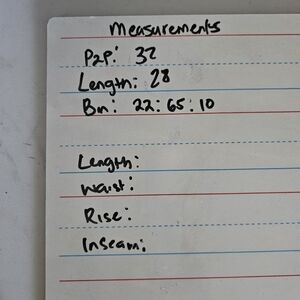 Measurements
P2P: 32
Length: 28
Bin: 22:65:10
Length:
Waist:
Rise:
Inseam: